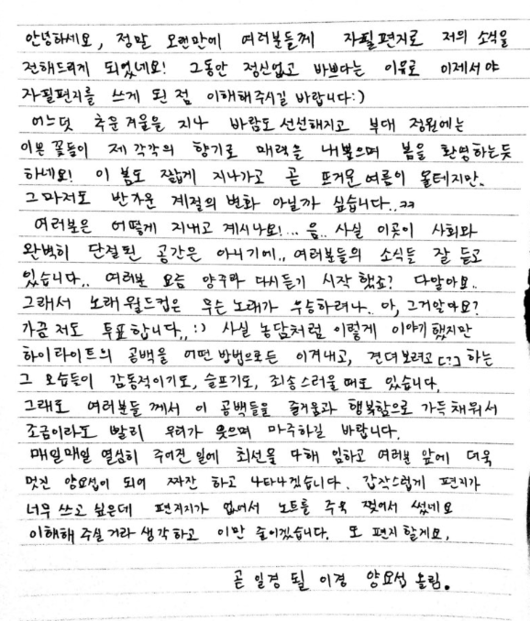 안녕하세요, 정말 오랜만에 여러분들께 자필편지로 저의 소식을
전해드리게 되었네요! 그동안 정신없고 바쁘다는 이유로 이제서야
자필편지를 쓰게 된 점 이해해주시길 바랍니다:)
어느덧 추운 겨울을 지나 바람도 선선해지고 부대 정원에는
이쁜 꽃들이 제 각각의 향기로 매력을 내뿜으며 봄을 환영하는듯
하네요! 이 봄도 짧게 지나가고 곧 뜨거운 여름이 올테지만..
그마저도 반가운 계절의 변화 아닐까 싶습니다..ㅋㅋ
여러분은 어떻게 지내고 계시나요!... 음.. 사실 이곳이 사회와
완벽히 단절된 공간은 아니기에.. 여러분들의 소식들 잘 듣고
있습니다.. 여러분 요즘 양주파 다시듣기 시작했죠? 다알아요..
그래서 노래 월드컵은 무슨 노래가 우승하려나.. 아, 그거알아요?
가끔 저도 투표합니다.. :) 사실 농담처럼 이렇게 이야기 했지만
하이라이트의 공백을 어떤 방법으로든 이겨내고, 견뎌보려고[?] 하는
그 모습들이 감동적이기도, 슬프기도, 죄송스러울 때도 있습니다.
그래도 여러분들 께서 이 공백들을 즐거움과 행복함으로 가득채워서
조금이라도 빨리 우리가 웃으며 마주하길 바랍니다.
매일매일 열심히 주어진 일에 최선을 다해 임하고 여러분 앞에 더욱
멋진 양요섭이 되어 짜잔 하고 나타나겠습니다. 갑작스럽게 편지가
너무 쓰고 싶은데 편지지가 없어서 노트를 주욱 찢어서 썼네요
이해해 주실거라 생각하고 이만 줄이겠습니다. 또 편지 할게요.
곧 일경 될 이경 양요섭 올림.